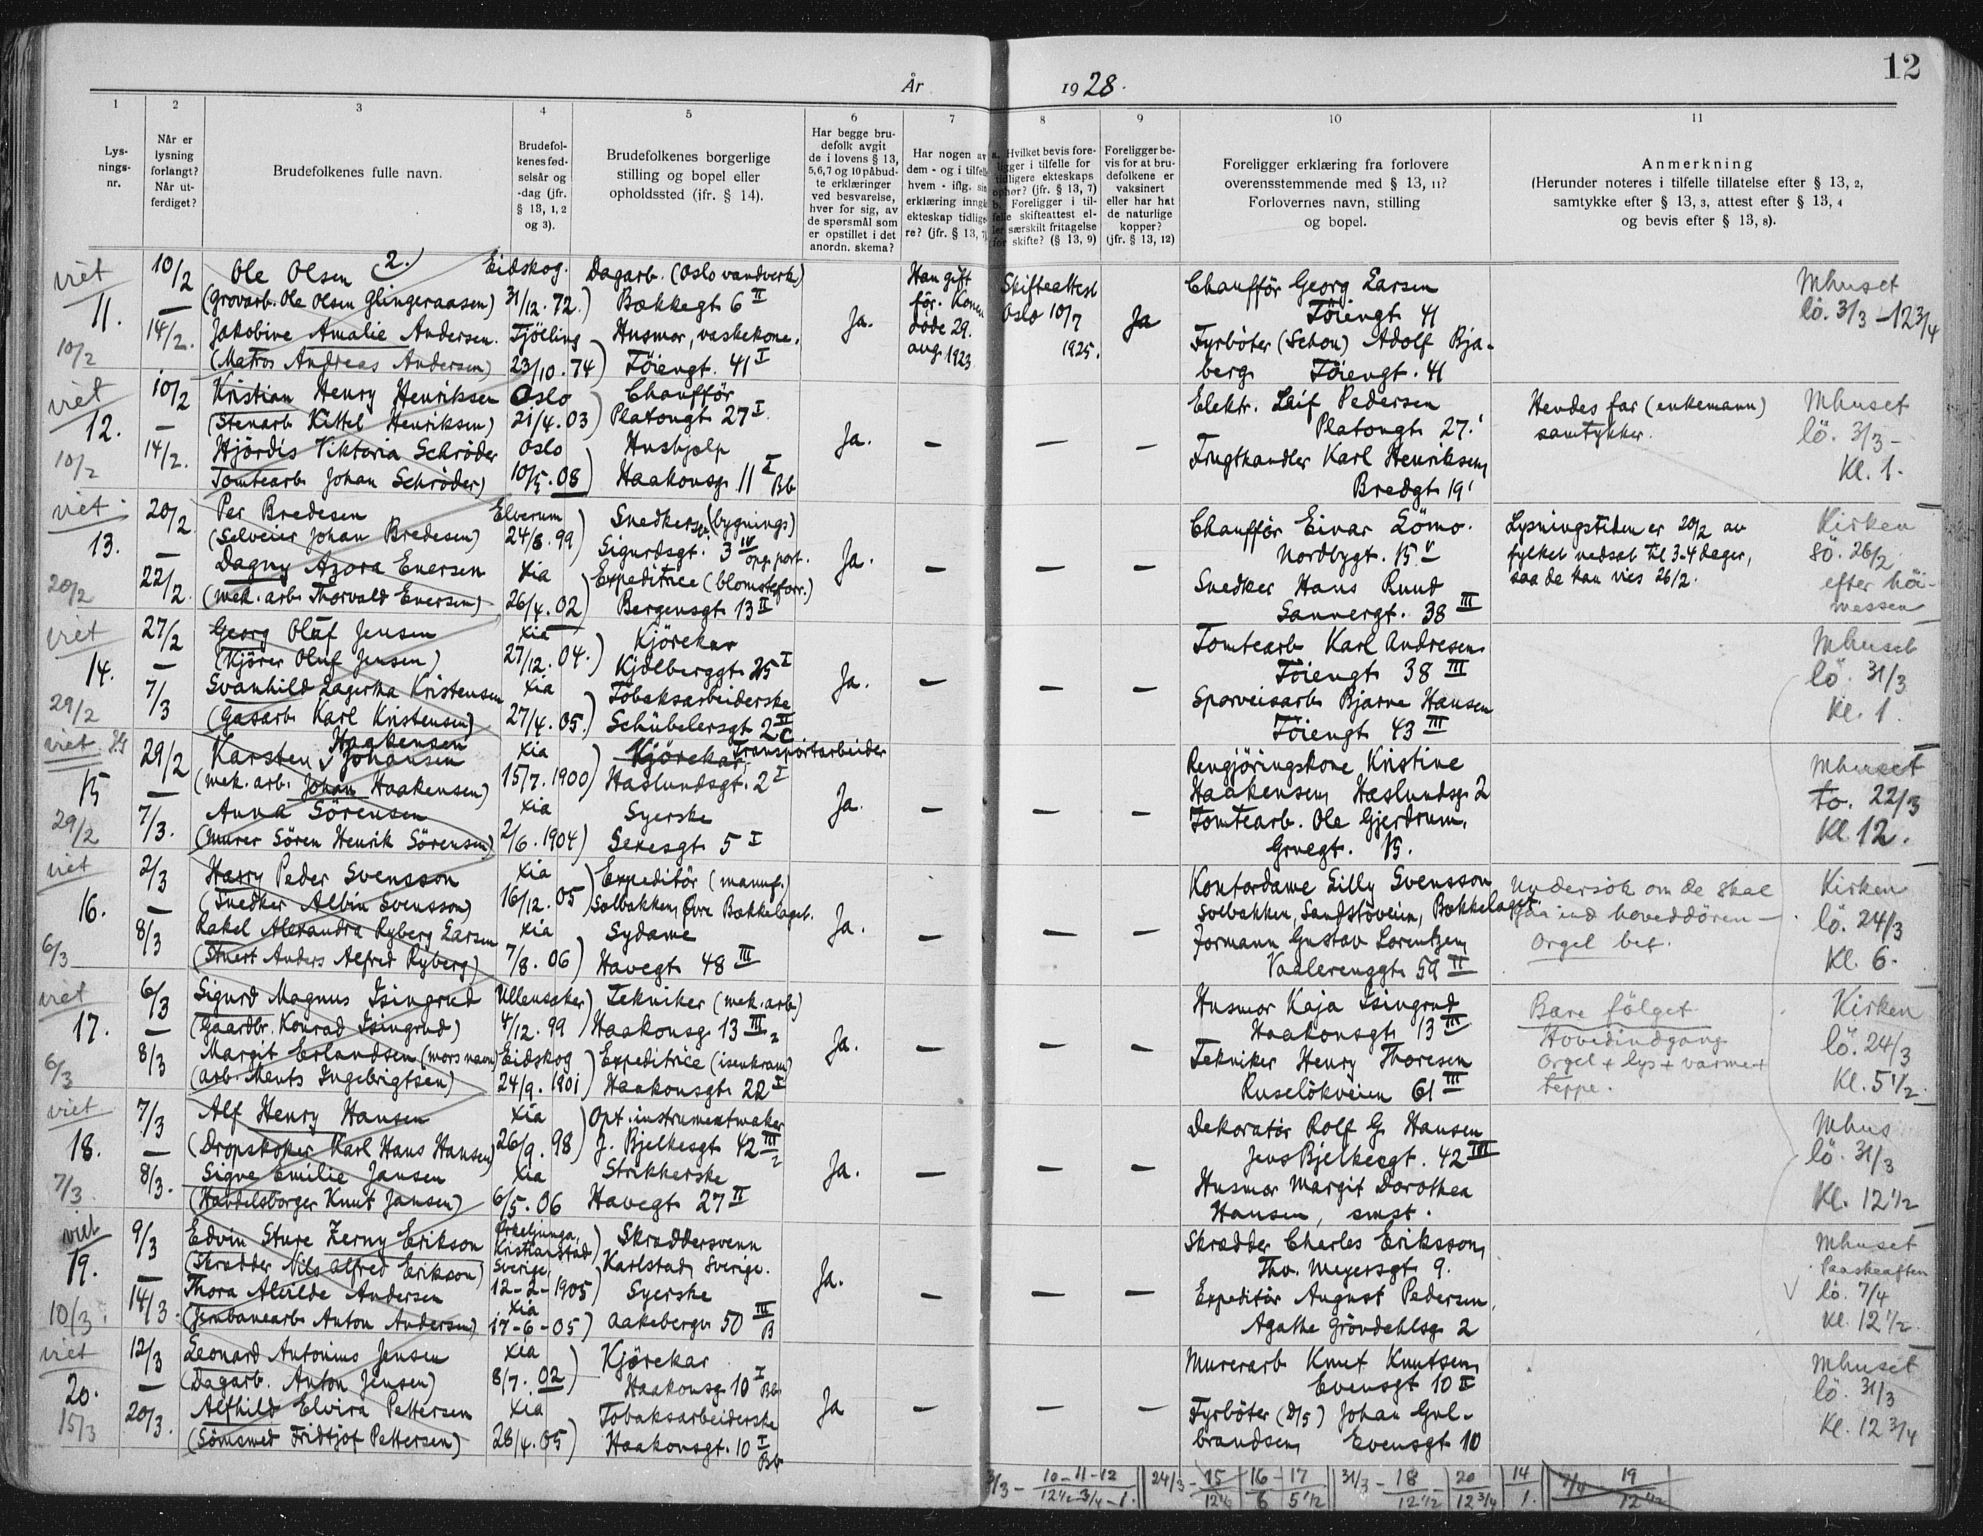 12
År 1928.
1 2 3 4 5 6 7 8 9 10 11
Lysningsnr.
Når er lysning forlangt? Når utferdiget?
Brudefolkenes fulle navn.
Brudefolkenes fødselsår og -dag (jfr. § 13, 1, 2 og 3).
Brudefolkenes borgerlige stilling og bopel eller opholdssted (jfr. § 14).
Har begge brudefolk avgit de i lovens § 13, 5,6,7 og 10 påbudte erklæringer ved besvarelse, hver for sig, av de spørsmål som er opstillet i det anordn. skema?
Har nogen av dem - og i tilfelle hvem - iflg. sin erklæring inngått ekteskap tidligere? (jfr. § 13, 7)
Hvilket bevis foreligger i tilfelle for tidligere ekteskaps ophør? (jfr. § 13, 7)
Foreligger i tilfelle skifteattest eller særskilt fritagelse for skifte? (§ 13, 9)
Foreligger bevis for at brudefolkene er vaksinert eller har hat de naturlige kopper? (jfr. § 13, 12)
Foreligger erklæring fra forlovere overensstemmende med § 13, 11?
Forlovernes navn, stilling og bopel.
Anmerkning
(Herunder noteres i tilfelle tillatelse efter § 13, 2, samtykke efter § 13, 3, attest efter § 13, 4 og bevis efter § 13, 8).
viet
11.
10/2
10/2
14/2.
Ole Olsen 2.
(grovarb. Ole Olsen Glingeraasen)
Jakobine Amalie Andersen.
(Matros Andreas Andersen)
Eidskog.
31/12. 72.)
Tjölling
23/10. 74)
Dagarb. (Oslo vandverk)
Bækkegt 6 II
Husmor, vaskekone.
Töiengt. 41 I
Ja.
Han gift
før. Konen
døde 29.
aug. 1923
Skifteattest
Oslo 10/7
1925.
Ja
Chaufför Georg Larsen
Töiengt 41
Fyrböter Adolf Bjaberg
Töiengt. 41
Mhuset
lö. 3/3 - 12 3/4
viet
12.
10/2
10/2
14/2.
Kristian Henry Henriksen
(Stenarb. Kittel Henriksen)
Hjördis Viktoria Schröder
(Tomtearb. Johan Schröder)
Oslo
21/4. 03)
Oslo
10/5. 08)
Chaufför
Platougt 27 I.
Hushjelp
Haakonsg. 11 I Bb
Ja. - - -
Elektr. Leif Pedersen
Platougt 27.
Frugthandler Karl Henriksen,
Bredgt 19
Hendes far (enkemann)
samtykker.
Mhuset
lö. 3/3 -
Kl. 1.
viet
13.
20/2
20/2
22/2.
Per Bredesen
(Selveier Johan Bredesen)
Dagny Azora Eversen
(mek. arb. Thorvald Eversen)
Elverum
24/8. 99)
Xia
26/4. 02)
Snedker (bygnings)
Sigurdsgt. 3 IV opg. port.
Expeditrice (blomsterforr.)
Bergensgt 13 II
Ja. - - -
Chaufför Einar Lömo.
Nordbygt. 15 II
Snedker Hans Ruud
Sannergt. 38 III
Lysningstiden er 20/2 av
fylket nedsat til 3-4 dager,
saa de kan vies 26/2.
Kirken
sö. 26/2
efter höimessen
viet
14.
29/2
27/2
7/3
Georg Oluf Jensen
(Kjörer Oluf Jensen)
Svanhild Lagertha Kristensen
(Gasarb. Karl Kristensen)
Xia
27/12. 04.)
Xia
27/4. 05.)
Kjörekar
Kjölberggt 25 I
Tobaksarbeiderske
Schübelersgt 2 c II
Ja. - - -
Tomtearb. Karl Andresen
Töiengt 38 III
Sporveisarb. Bjarne Hansen
Töiengt 43 III
Mhuset
lö. 31/3
Kl. 1.
viet.
15
29/2
29/2
7/3.
Haakensen
Karsten Johansen
(mek. arb. Johan Haakensen)
Anna Sörensen
(murer Sören Henrik Sörensen)
Xia
15/7. 1900)
Xia
2/6. 1904)
Kjörekar Transportarbeider
Haslundsgt. 2 I
Syerske
Sexesgt 5 I
Ja. - - -
Rengjöringskone Kristine
Haakensen, Haslundsg. 2
Tomtearb. Ole Gjerdrum.
Gruegt. 15.
Mhuset
to. 22/3
Kl. 12.
viet
16.
6/3
2/3
8/3
Harry Peder Svensson
(Snedker Albin Svensson)
Rakel Alexandra Ryberg Larsen
(Stuert Anders Alfred Ryberg)
Xia
16/12. 05)
Xia
7/8. 06)
Expeditör (manuf.)
Solbakken, Övre Bækkelaget.
Sydame
Havegt 48 III
Ja. - - -
Kontordame Lilly Svensson
Solbakken, Sandstöveien, Bækkelaget
Formann Gustav Lorentzen,
Vaalerenggt. 59 II
Undersök om de skal
gaa ind hoveddören -
Orgel bet.
Kirken
lö. 24/3
Kl. 6.
viet
17.
6/3
6/3
8/3
Sigurd Magnus Isingrud
(Gaardbr. Konrad Isingrud)
Margit Erlandsen (mors navn)
(arb. Ments Ingebrigtsen)
Ullensaker)
4/12. 99
Eidskog
24/9. 1901
Tekniker (mek. arb)
Haakonsg. 13 III 2
Expeditrice (isenkram)
Haakonsgt. 22 I
Ja. - - -
Husmor Kaja Isingrud
Haakonsgt 13 III
Tekniker Henry Thoresen
Ruselökveien 61 III
Bare fölget
Hovedindgang
Orgel + lys + varme +
teppe.
Kirken
lö. 24/3
Kl. 5 1/2.
viet
18.
7/3
7/3
8/3.
Alf Henry Hansen
(Dropskoker Karl Hans Hansen)
Signe Emilie Jansen
(Handelsborger Knut Jansen)
Xia
26/9. 98)
Xia
6/5. 06
Opt. instrumentmaker
J. Bjelkesgt 42 III 2
Strikkerske
Havegt 27 II
Ja. - - -
Dekoratör Rolf G. Hansen
Jens Bjelkesgt. 42 III
Husmor Margit Dorothea
Hansen, smst.
Mhus
lö. 31/3
Kl. 12 1/2
viet
19.
10/3
9/3
14/3.
Edvin Sture Zerny Erikson
(Skrædder Nils Alfred Erikson)
Thora Alvilde Andersen
(Jernbanearb. Anton Andersen)
Örkeljunga,
Kristianstad,
Sverige.
12-2-1905)
Xia
17-6-05)
Skræddersvenn
Karlstad, Sverige.
Syerske
Aakebergv. 50 III B
Ja. - - -
Skrædder Charles Eriksson,
Thv. Meyersgt 9.
Expeditör August Pedersen,
Agathe Gröndahlsg 2
Mhuset
Paaskeaften
lö. 7/4
Kl. 12 1/2.
viet
20.
15/3
12/3
20/3.
Leonard Antonius Jensen
(Dagarb. Anton Jensen)
Alfhild Elvira Pettersen
(Sömsmed Fridtjof Pettersen)
Xia
8/7. 02)
Xia
28/4. 05)
Kjörekar
Haakonsg. 10 I Bb
Tobaksarbeiderske
Haakonsgt. 10 I Bb
Ja - - -
Murerarb. Knut Knutsen,
Evensgt 10 II
Fyrböter (D/S) Johan Gulbrandsen,
Evensgt 10
Mhuset
lö. 31/3
Kl. 12 3/4
3/3 - 10-11-12 / 12 1/2 - 3/4 - 1. 24/3 - 15 / 12 1/2 16 - 17 / 6 5 1/2 31/3 - 18 / 12 1/2 20 / 12 3/4 14 / 1. 7/4 19 / 12 1/2